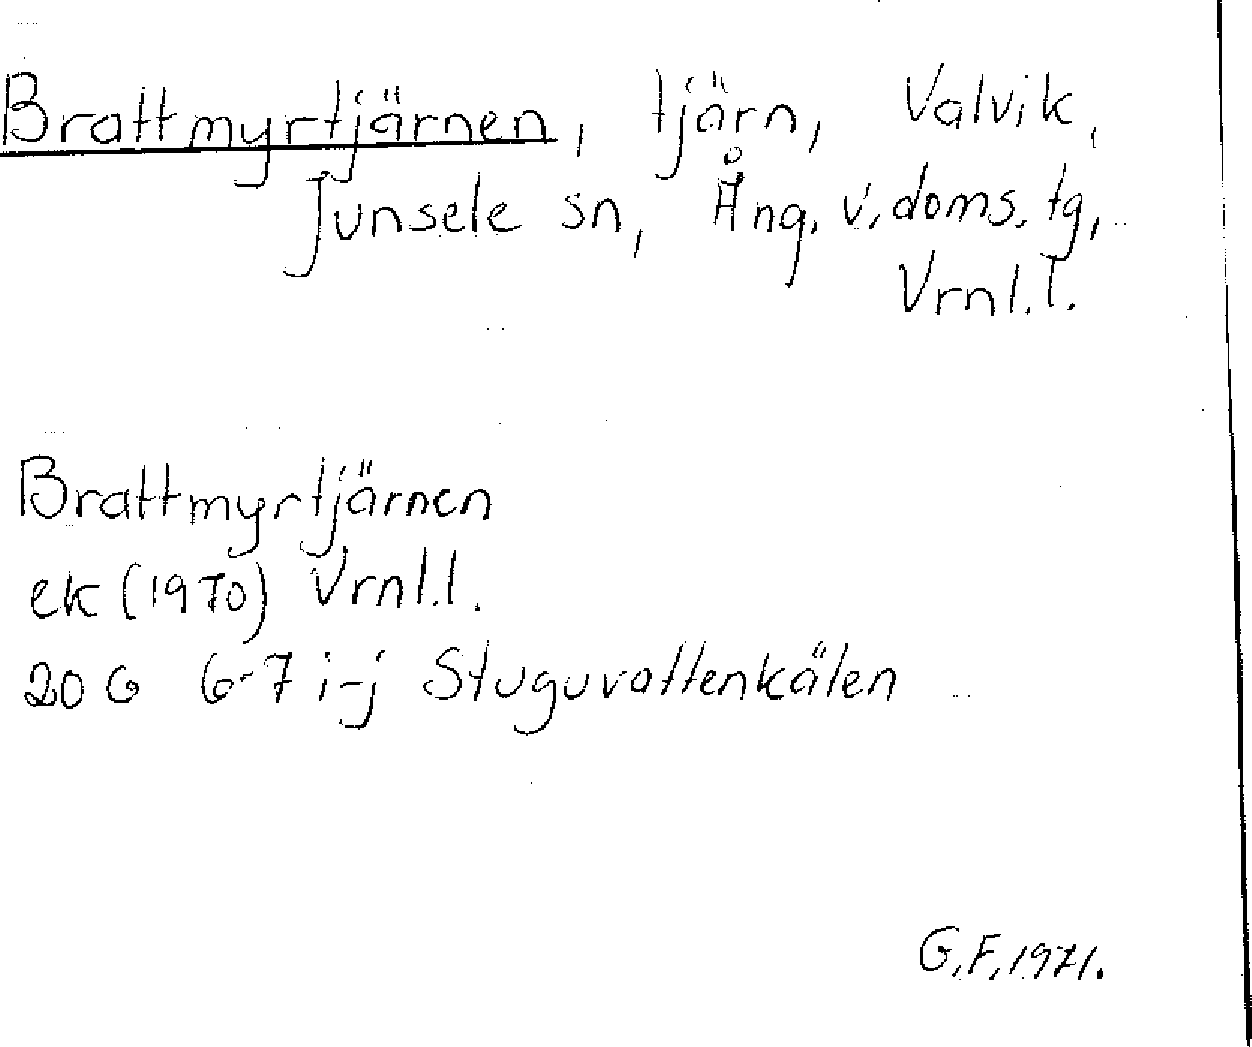 Brattmyrtjärnen, tjärn, Valvik,
Junsele sn, Ång. v. doms. tg,
Vrnl.l.
Brattmyrtjärnen
ek (1970) Vrnl.l.
20 G 6-7 i-j Stuguvattenkälen
G.F. 1971.